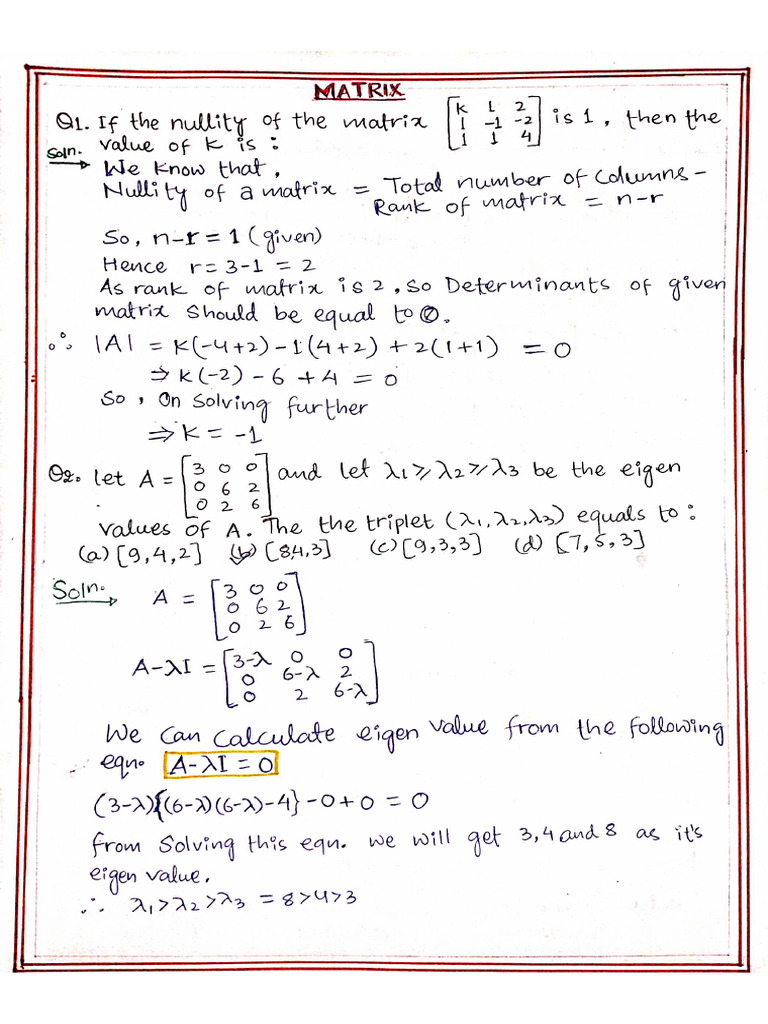 MATRIX
Q1. If the nullity of the matrix [K 1 2
1 -1 -2
1 1 4] is 1, then the
value of K is :
Soln. We know that,
Nullity of a matrix = Total number of Columns -
Rank of matrix = n-r
So, n-r = 1 (given)
Hence r = 3-1 = 2
As rank of matrix is 2, so Determinants of given
matrix should be equal to 0.
∴ |A| = K(-4+2) -1(4+2) + 2(1+1) = 0
⇒ K(-2) - 6 + 4 = 0
So, On solving further
⇒ K = -1
Q2. let A = [3 0 0
0 6 2
0 2 6] and let λ1 ≥ λ2 ≥ λ3 be the eigen
values of A. The the triplet (λ1, λ2, λ3) equals to :
(a) [9,4,2] (b) [84,3] (c) [9,3,3] (d) [7,5,3]
Soln. A = [3 0 0
0 6 2
0 2 6]
A-λI = [3-λ 0 0
0 6-λ 2
0 2 6-λ]
We Can Calculate eigen value from the following
eqn. A-λI = 0
(3-λ){(6-λ)(6-λ)-4} -0+0 = 0
from Solving this eqn. we will get 3,4 and 8 as it's
eigen value.
∴ λ1 > λ2 > λ3 = 8 > 4 > 3